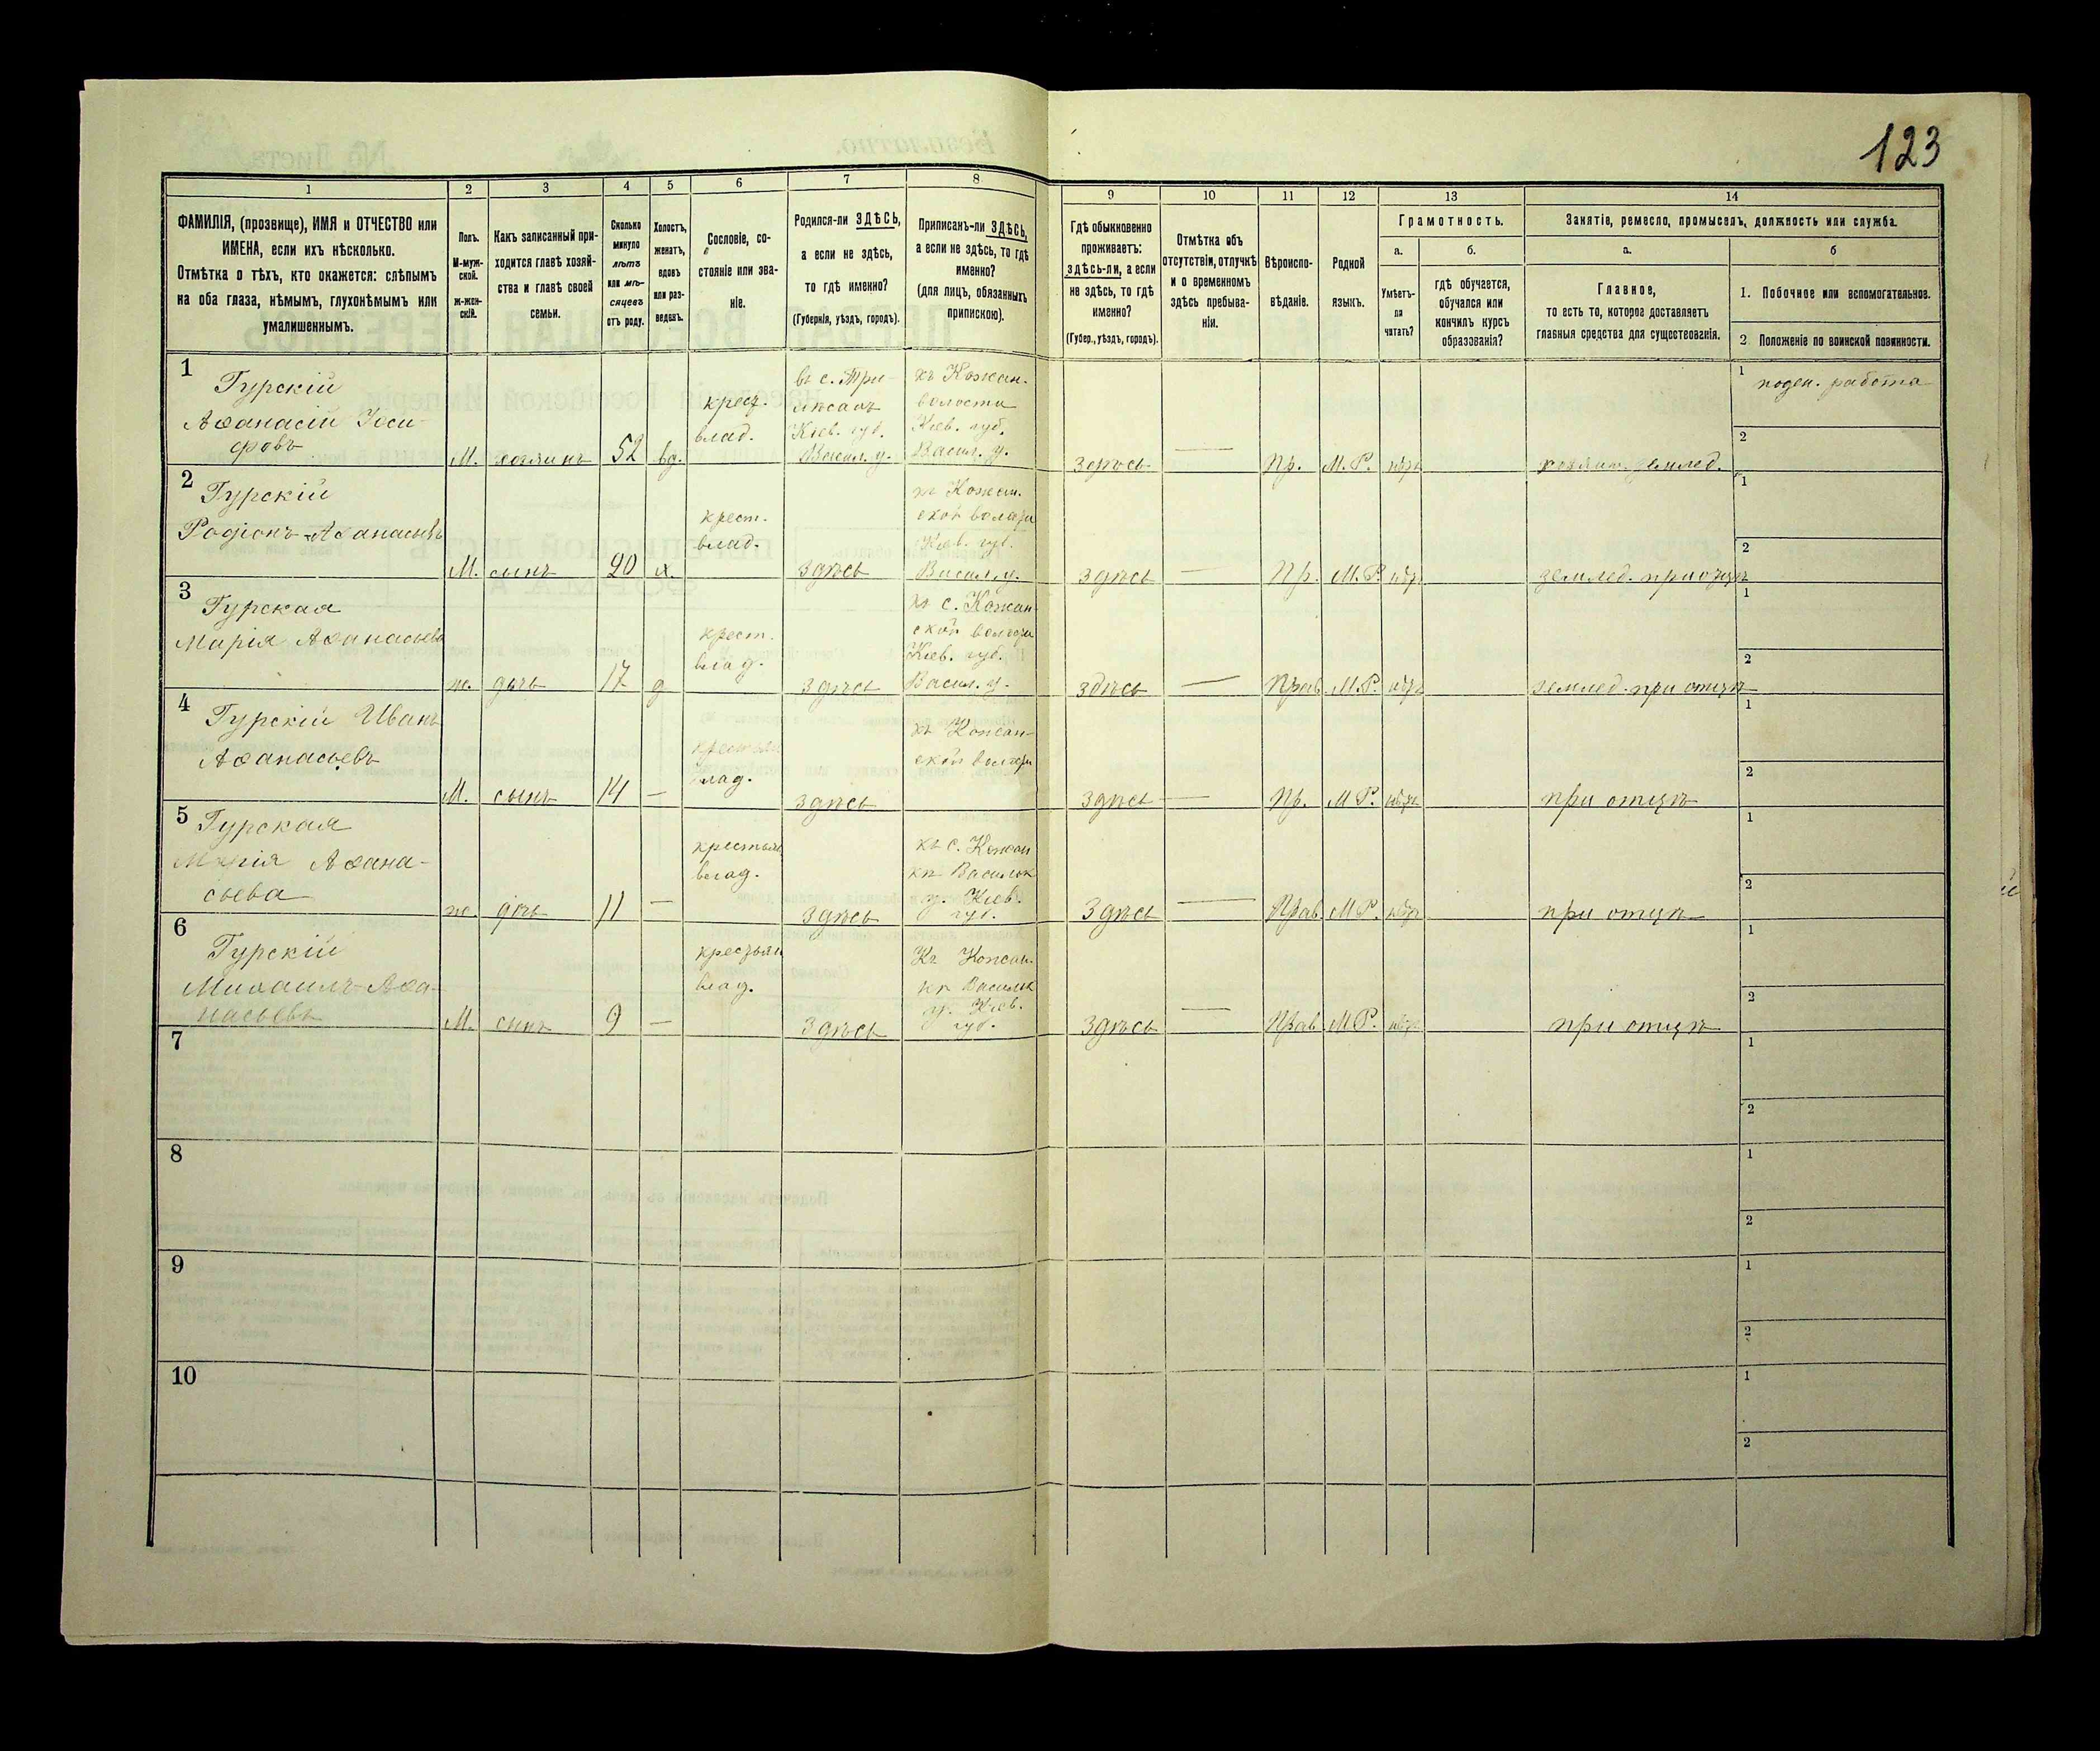 123
1
2
3
4
5
6
7
8
9
10
11
12
13
14
ФАМИЛІЯ, (прозвище), ИМЯ и ОТЧЕСТВО или
ИМЕНА, если ихъ нѣсколько.
Отмѣтка о тѣхъ, кто окажется: слѣпымъ
на оба глаза, нѣмымъ, глухонѣмымъ или
умалишеннымъ.
Полъ.
М-муж-
ской.
ж-жен-
скій.
Какъ записанный при-
ходится главѣ хозяй-
ства и главѣ своей
семьи.
Сколько
минуло
лѣтъ
или мѣ-
сяцевъ
отъ роду.
Холостъ,
женатъ,
вдовъ
или раз-
веденъ.
Сословіе, со-
стояніе или зва-
ніе.
Родился-ли ЗДѢСЬ,
а если не здѣсь,
то гдѣ именно?
(Губернія, уѣздъ, городъ).
Приписанъ-ли ЗДѢСЬ,
а если не здѣсь, то гдѣ
именно?
(для лицъ, обязанныхъ
припискою).
Гдѣ обыкновенно
проживаетъ:
здѣсь-ли, а если
не здѣсь, то гдѣ
именно?
(Губер., уѣздъ, городъ).
Отмѣтка объ
отсутствіи, отлучкѣ
и о временномъ
здѣсь пребыва-
ніи.
Вѣроиспо-
вѣданіе.
Родной
языкъ.
Грамотность.
а.
б.
Умѣетъ-
ли
читать?
гдѣ обучается,
обучался или
кончилъ курсъ
образованія?
Занятіе, ремесло, промыселъ, должность или служба.
а.
б
Главное,
то есть то, которое доставляетъ
главныя средства для существованія.
1. Побочное или вспомогательное.
2. Положеніе по воинской повинности.
1
Гурскій
Аѳанасій Іоси-
фовъ
М.
хозяинъ
52
вд.
крест.
влад.
въ с. Три-
лѣсахъ
Кіев. губ.
Васил. у.
къ Кожан.
волости
Кіев. губ.
Васил. у.
здѣсь
—
Пр.
М. Р.
нѣтъ
хозяин. землед.
1
поден. работа
2
2
Гурскій
Родіонъ Аѳанасьевъ
М.
сынъ
20
х.
крест.
влад.
здѣсь
къ Кожан.
ской волости
Кіев. губ.
Васил. у.
здѣсь
—
Пр.
М. Р.
нѣтъ
землед. при отцѣ
1
2
3
Гурская
Марія Аѳанасьева
ж.
дочь
17
д
крест.
влад.
здѣсь
къ с. Кожан
ской волости
Кіев. губ.
Васил. у.
здѣсь
—
Прав
М. Р.
нѣтъ
землед. при отцѣ
1
2
4
Гурскій Иванъ
Аѳанасьевъ
М.
сынъ
14
—
крестьян
влад.
здѣсь
къ Кожан-
ской волости
здѣсь
—
Пр.
М Р.
нѣтъ
при отцѣ
1
2
5
Гурская
Марія Аѳана-
сьева
ж.
дочь
11
—
крестьян
влад.
здѣсь
къ с. Кожан
кѣ Васильк
у. Кіев.
губ.
Здѣсь
—
Прав
М Р.
нѣтъ
при отцѣ
1
2
6
Гурскій
Михаилъ Аѳа-
насьевъ
М.
сынъ
9
—
крестьян
влад.
Здѣсь
Къ Кожан.
кѣ Васильк
у. Кіев.
губ.
здѣсь
—
Прав
М Р.
нѣтъ
при отцѣ
1
2
7
1
2
8
1
2
9
1
2
10
1
2